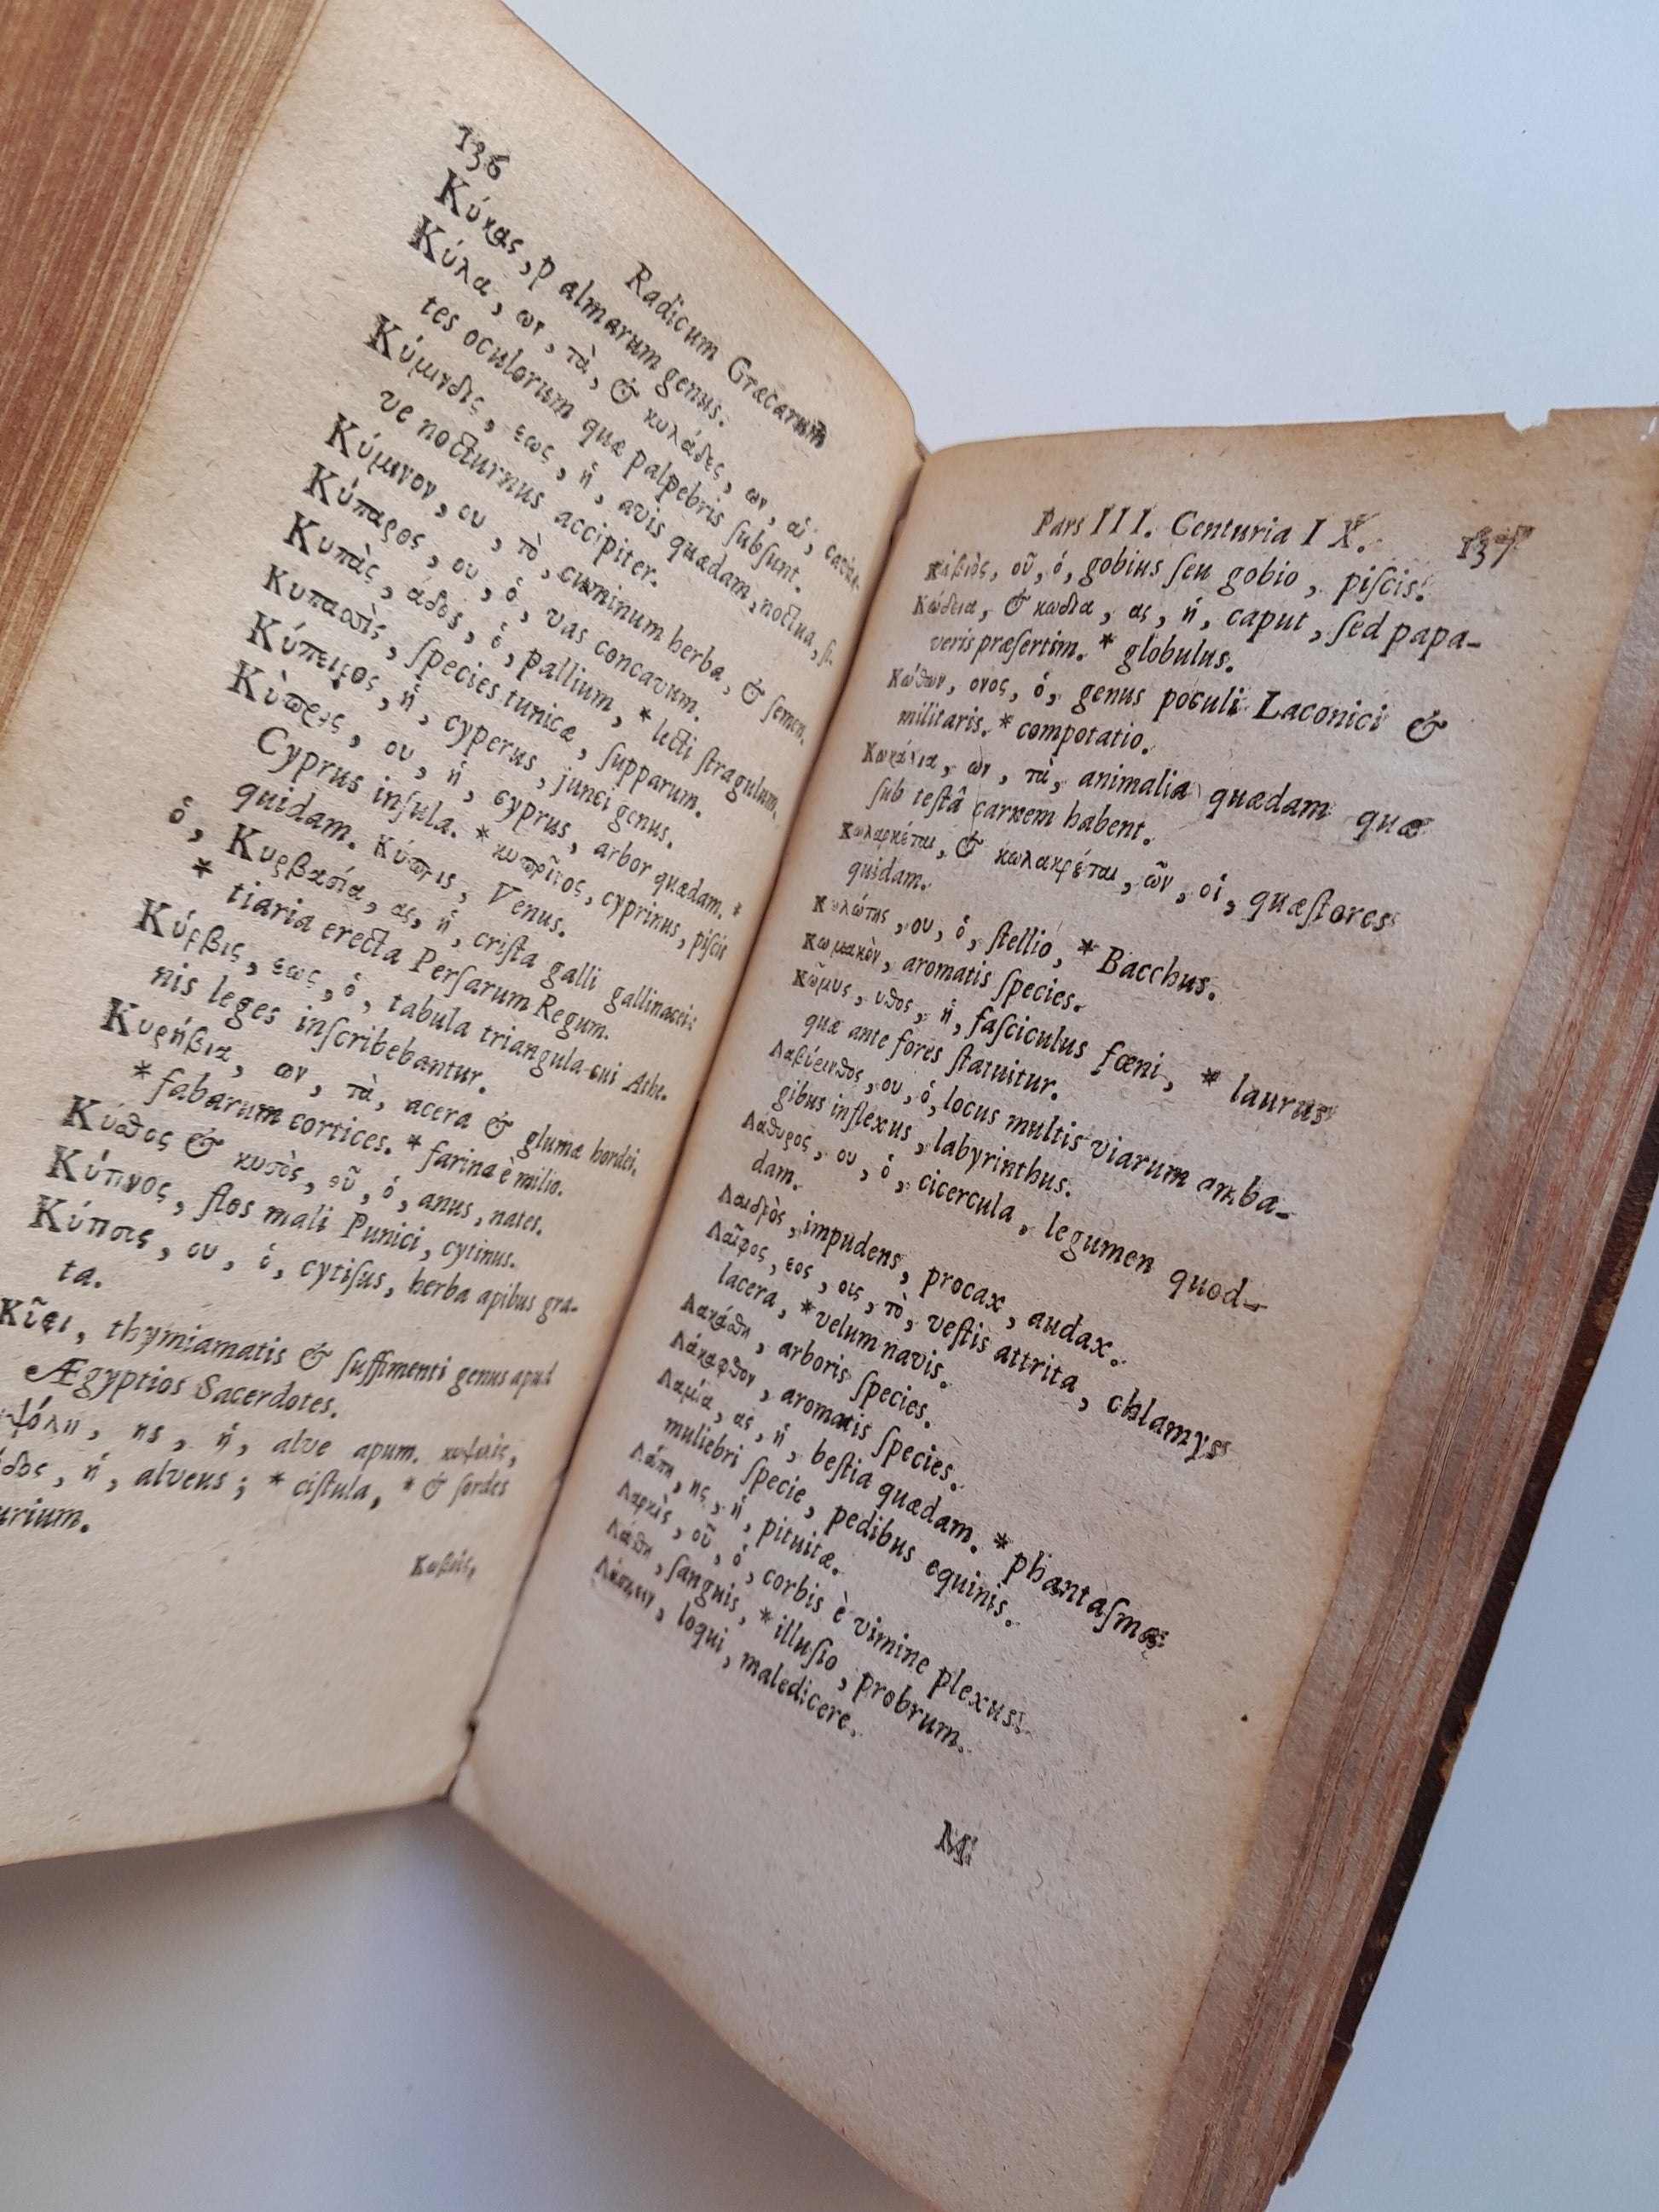 136
Radicum Græcarum
Κύκας, palmarum genus.
Κύλα, ων, τὰ, & κυλάδες, ων, αἱ, cavita-
tes oculorum quæ palpebris ſubſunt.
Κύμινδις, εως, ἡ, avis quædam, noctua, ſi-
ve nocturnus accipiter.
Κύμινον, ου, τὸ, cuminum herba, & ſemen.
Κύπαρος, ου, ὁ, vas concavum.
Κυπὰς, άδος, ὁ, pallium, * lecti ſtragulum,
Κυπασὶς, ſpecies tunicæ, ſupparum.
Κύπειρος, ἡ, cyperus, junci genus.
Κύπρος, ου, ἡ, cyprus, arbor quædam. *
Cyprus inſula. * κυπρῖνος, cyprinus, piſcis
quidam. Κύπρις, Venus.
ὁ, Κυρβασία, ας, ἡ, criſta galli gallinacei:
* tiaria erecta Perſarum Regum.
Κύρβις, εως, ὁ, tabula triangula cui Athe-
nis leges inſcribebantur.
Κυρήβια, ων, τὰ, acera & glumæ hordei,
* fabarum cortices. * farina è milio.
Κύσθος & κυσὸς, οῦ, ὁ, anus, nates.
Κύτινος, flos mali Punici, cytinus.
Κύτισις, ου, ὁ, cytiſus, herba apibus gra-
ta.
Κῦφι, thymiamatis & ſuffimenti genus apud
Ægyptios Sacerdotes.
ης, ἡ, alve apum.
ἡ, alveus; * ciſtula, * & ſordes
urium.
Pars III. Centuria IX. 137
Κωβιὸς, οῦ, ὁ, gobius ſeu gobio, piſcis.
Κώδεια, & κωδία, ας, ἡ, caput, ſed papa-
veris præſertim. * globulus.
Κώθων, ονος, ὁ, genus poculi Laconici &
militaris. * compotatio.
Κωράλια, ων, τὰ, animalia quædam quæ
ſub teſtâ carnem habent.
Κωλαρκέται, & κωλακρέται, ῶν, οἱ, quæſtores
quidam.
Κωλώτης, ου, ὁ, ſtellio, * Bacchus.
Κωμακὸν, aromatis ſpecies.
Κῶμυς, υθος, ἡ, faſciculus fœni, * laurus
quæ ante fores ſtatuitur.
Λαβύρινθος, ου, ὁ, locus multis viarum amba-
gibus inflexus, labyrinthus.
Λάθυρος, ου, ὁ, cicercula, legumen quod-
dam.
Λαιδρὸς, impudens, procax, audax.
Λαῖφος, εος, ους, τὸ, veſtis attrita, chlamys
lacera, * velum navis.
Λακάθη, arboris ſpecies.
Λάκαφθον, aromatis ſpecies.
Λαμία, ας, ἡ, beſtia quædam. * phantaſma
muliebri ſpecie, pedibus equinis.
Λάπη, ης, ἡ, pituita.
Λαρκὸς, οῦ, ὁ, corbis è vimine plexus.
Λάσθη, ſanguis, * illuſio, probrum.
Λάσκειν, loqui, maledicere.
M